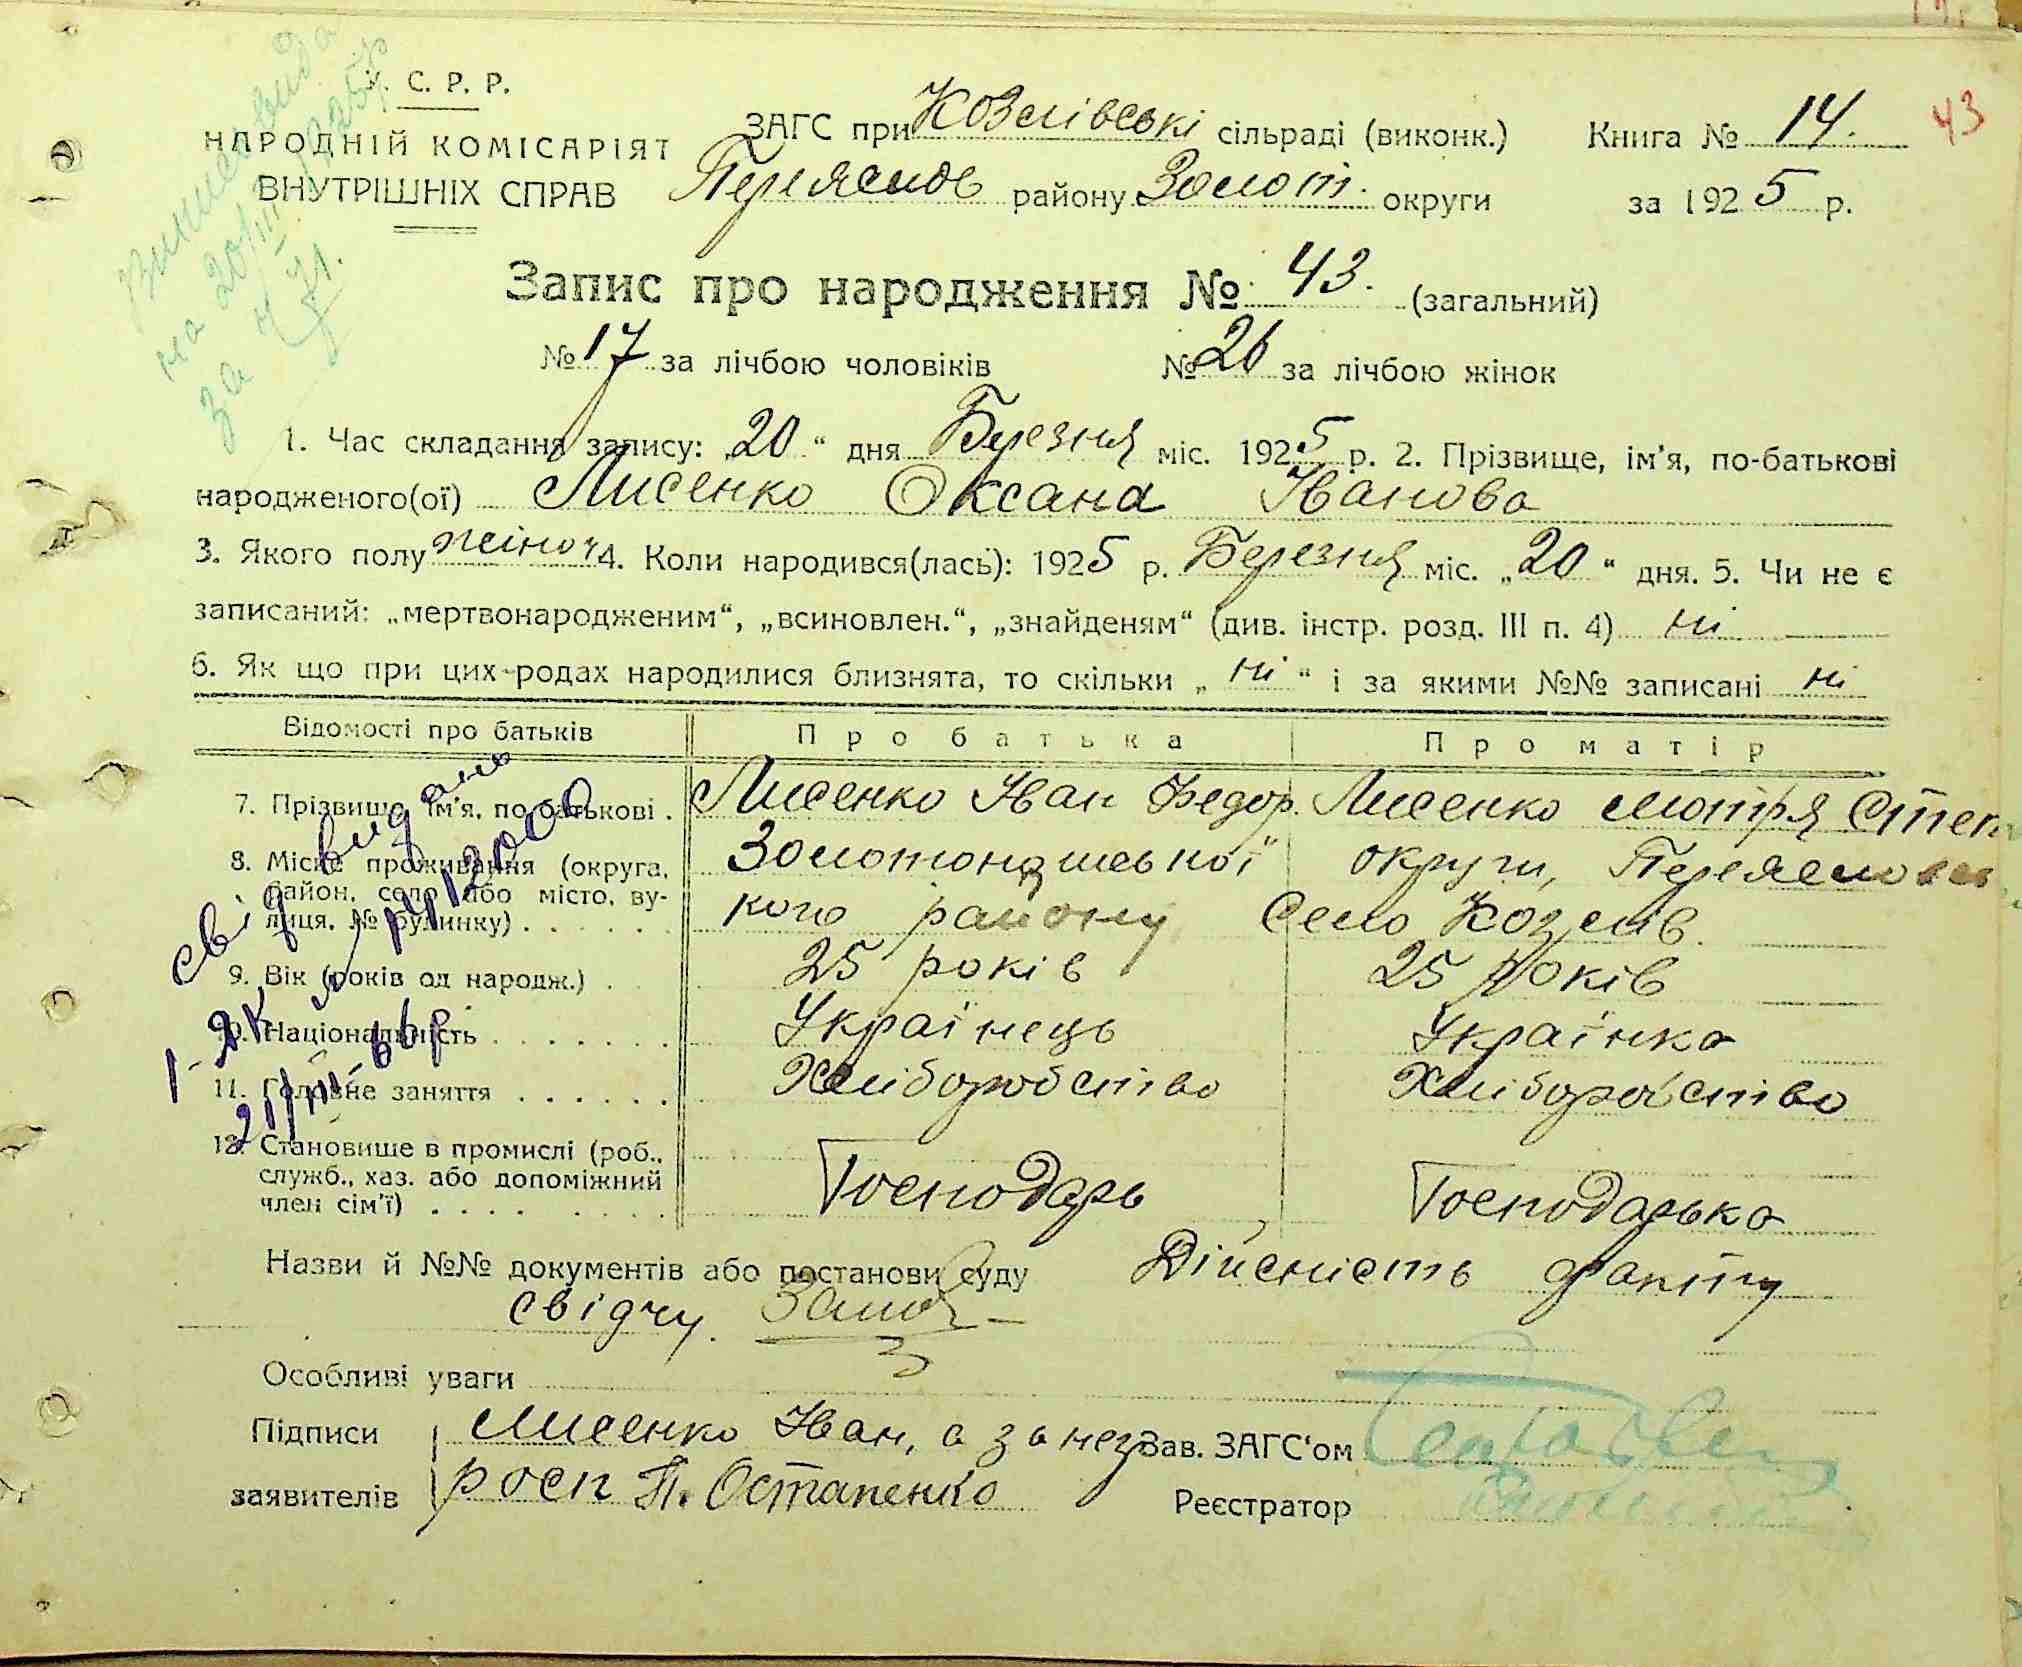 У. С. Р. Р.
НАРОДНІЙ КОМІСАРІЯТ
ВНУТРІШНІХ СПРАВ
ЗАГС при Козлівські сільраді (виконк.)
Переяслов району Золот. округи
Книга № 14.
за 1925 р.
43
Запис про народження № 43. (загальний)
№ 17 за лічбою чоловіків № 26 за лічбою жінок
1. Час складання запису: „20“ дня Березня міс. 1925 р. 2. Прізвище, ім'я, по-батькові
народженого(ої) Лисенко Оксана Іванова
3. Якого полу жіноч 4. Коли народився(лась): 1925 р. Березня міс. „20“ дня. 5. Чи не є
записаний: „мертвонародженим“, „всиновлен.“, „знайденям“ (див. інстр. розд. III п. 4) ні
6. Як що при цих родах народилися близнята, то скільки „ні“ і за якими №№ записані ні
Відомості про батьків Про батька Про матір
7. Прізвище, ім'я, по-батькові . Лисенко Іван Федор. Лисенко Мотря Степ
8. Місце проживання (округа, Золотоношської округи, Переясловсь
район, село або місто, ву-
лиця, № будинку) . . . . . . кого району Село Козлів.
9. Вік (років од народж.) . 25 років 25 років
10. Національність . . . . . . . Українець Українка
11. Головне заняття . . . . . . Хліборобство Хліборобство
12. Становище в промислі (роб.,
служб., хаз. або допоміжний Господарь Господарька
член сім'ї) . . . . . . . .
Назви й №№ документів або постанови суду Дійсність факту
свідчу.
Особливі уваги
Підписи Лисенко Іван, а за нез Зав. ЗАГС'ом
заявителів росп П. Остапенко Реєстратор
на 20/III 1925р
за № 71.
свід видано
1-ЯК № 412000
21/III-66р